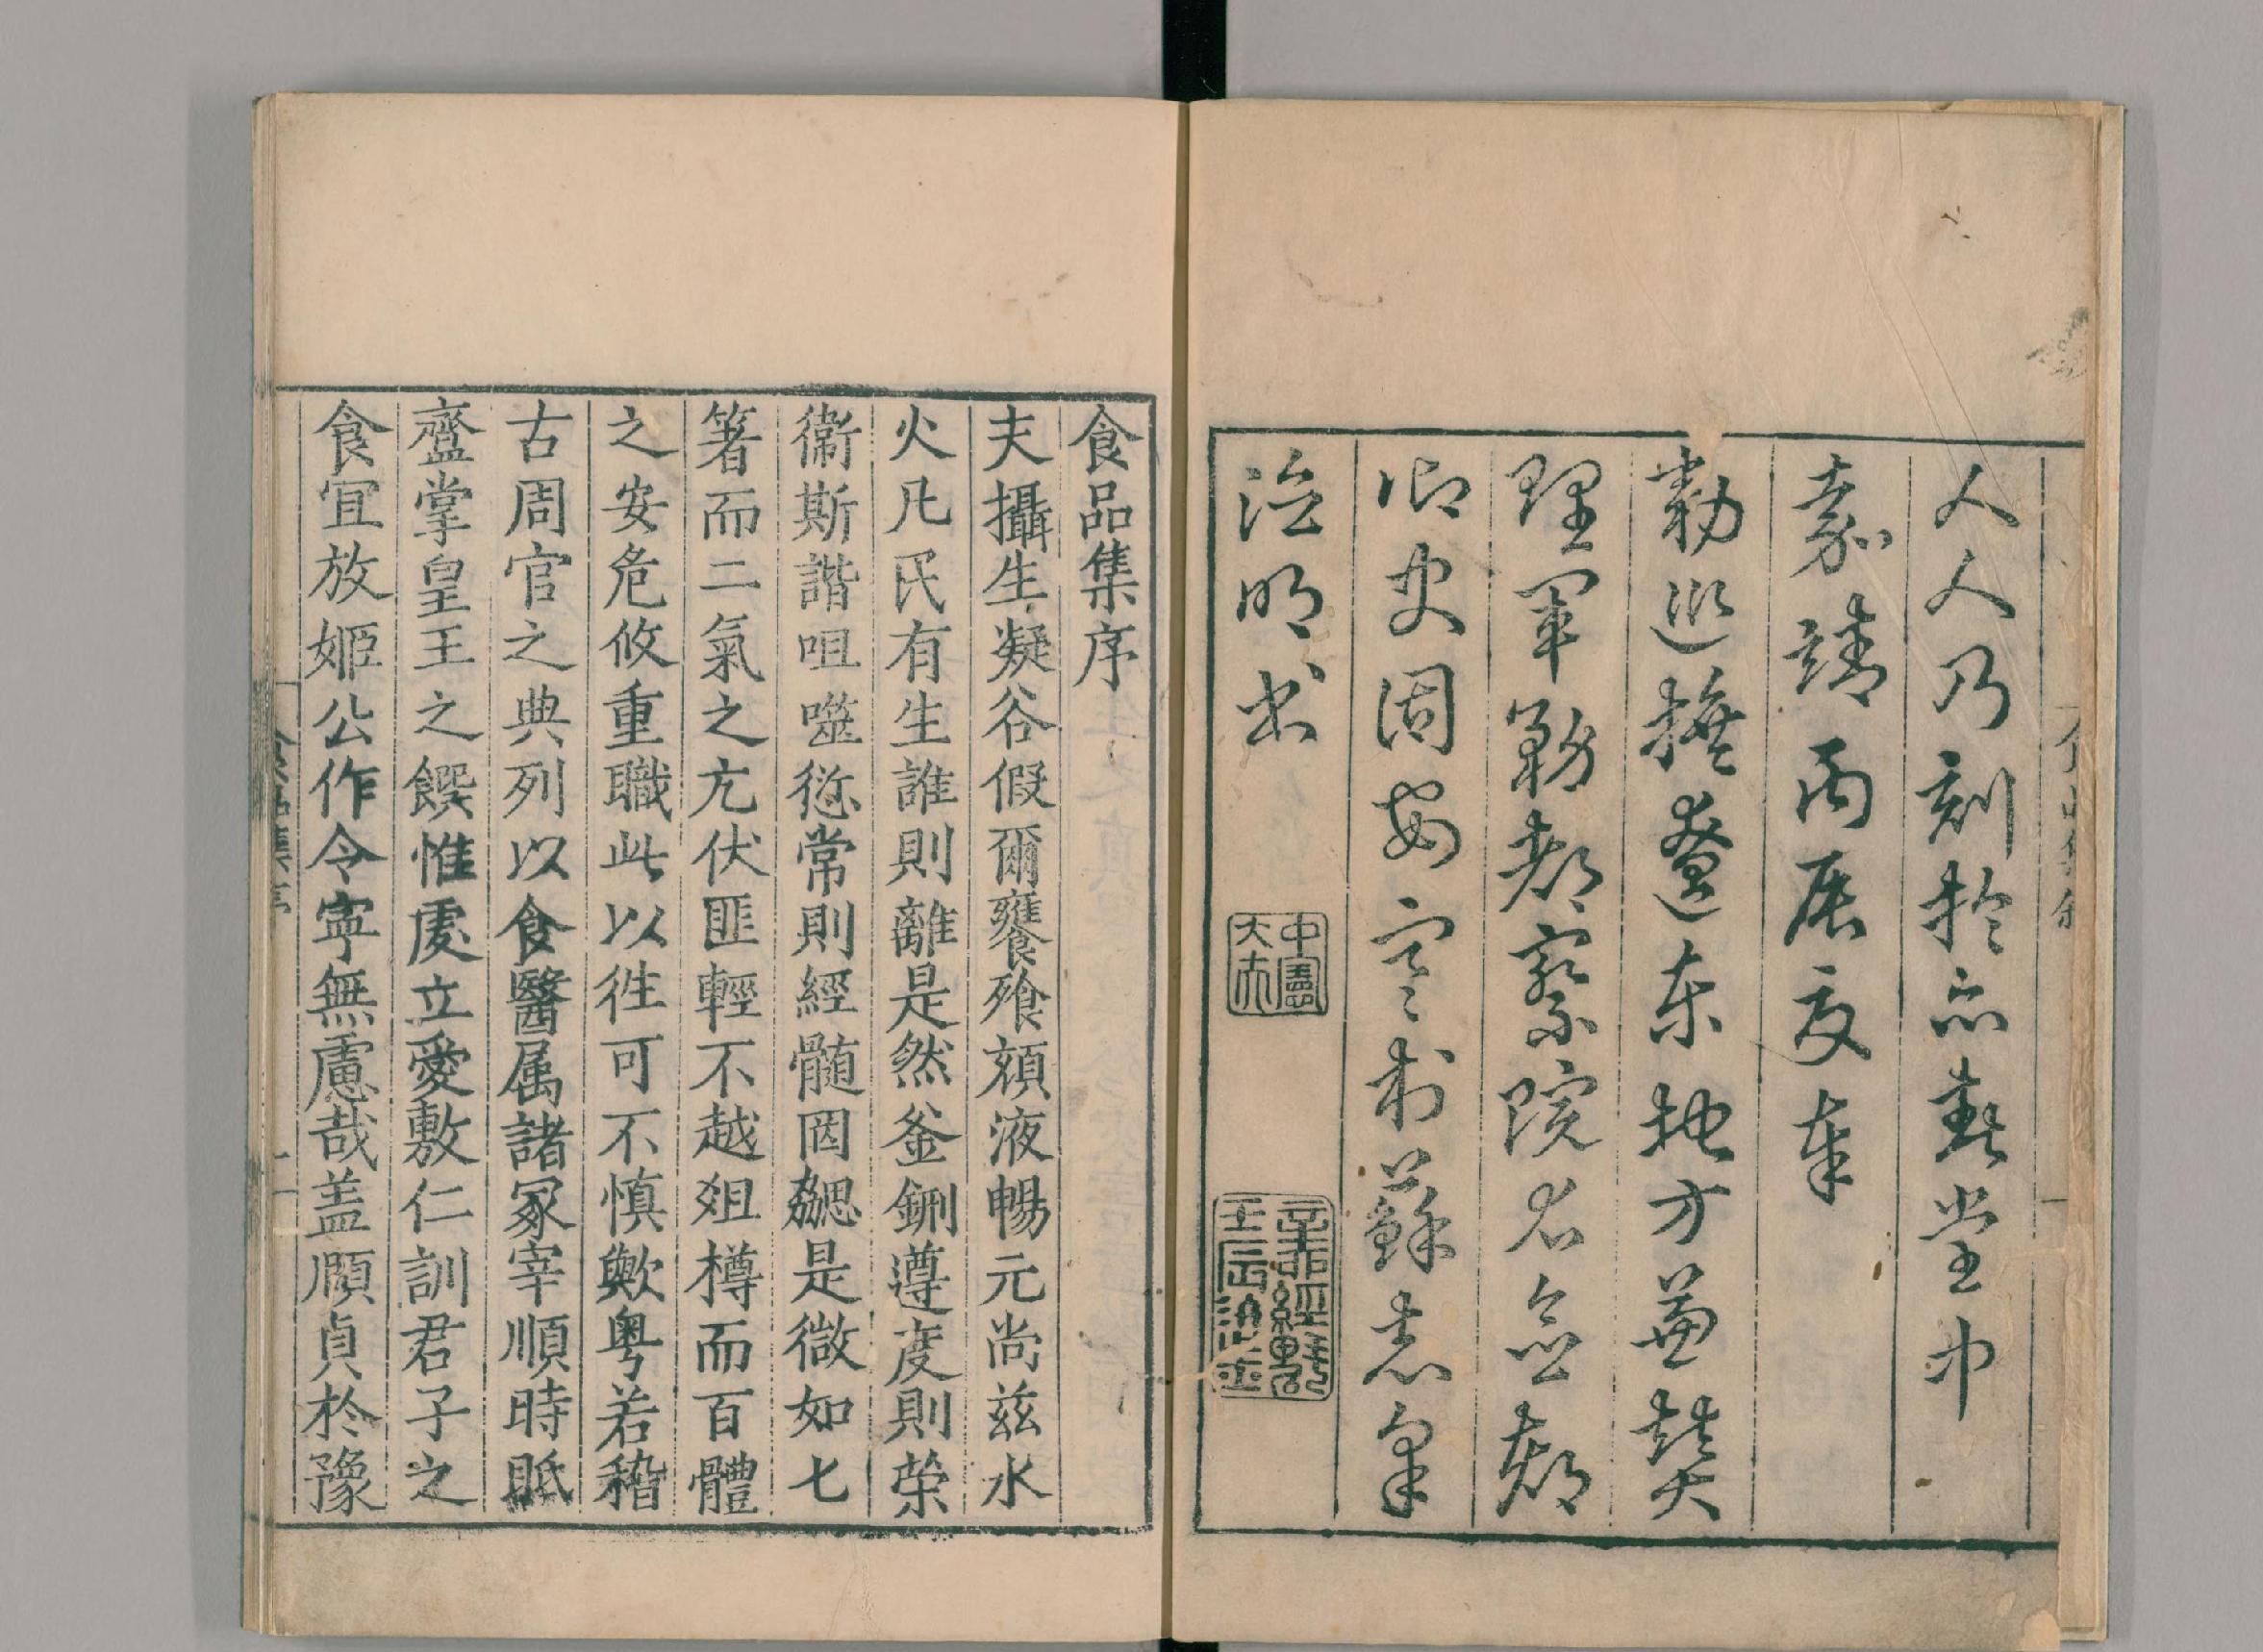 人人乃刻於忘熱堂中
嘉靖丙辰夏奉
勑巡撫遼東地方兼賛
理軍務都察院右僉都
御史固安蘇志皋
治明書
中憲大夫
食品集序
夫攝生凝谷假爾饔飱頮液暢元尚兹水
火凡民有生誰則離是然釜鉶遵度則荣
衞斯諧咀噬愆常則經髓罔勰是微如七
箸而二氣之亢伏匪輕不越爼樽而百體
之安危攸重職此以徃可不慎歟粤若稽
古周官之典列以食醫属諸冢宰順時眂
齍掌皇王之饌惟䖏立愛敷仁訓君子之
食宜放姬公作令寜無慮哉盖頤貞於豫
食品集序